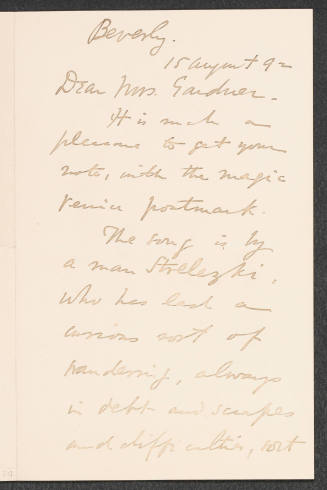 Beverly.
15 August 92
Dear Mrs. Gardner -
It is such a
pleasure to get your
note, with the magic
Venice postmark.
The song is by
a man Strelezki,
who has lead a
curious sort of
wandering, always
in debt and scrapes
and difficulties, sort